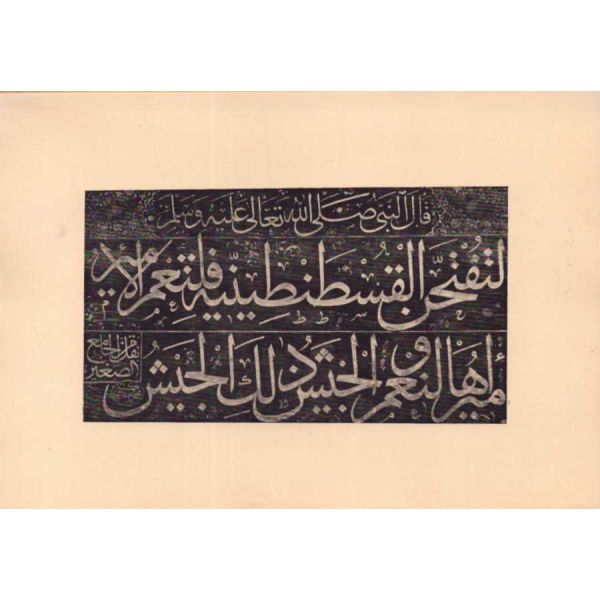 قال النبي صلى الله تعالى عليه وسلم
لتفتحن القسطنطينية فلنعم الأمير
أميرها ولنعم الجيش ذلك الجيش
نقل من الجامع
الصغير